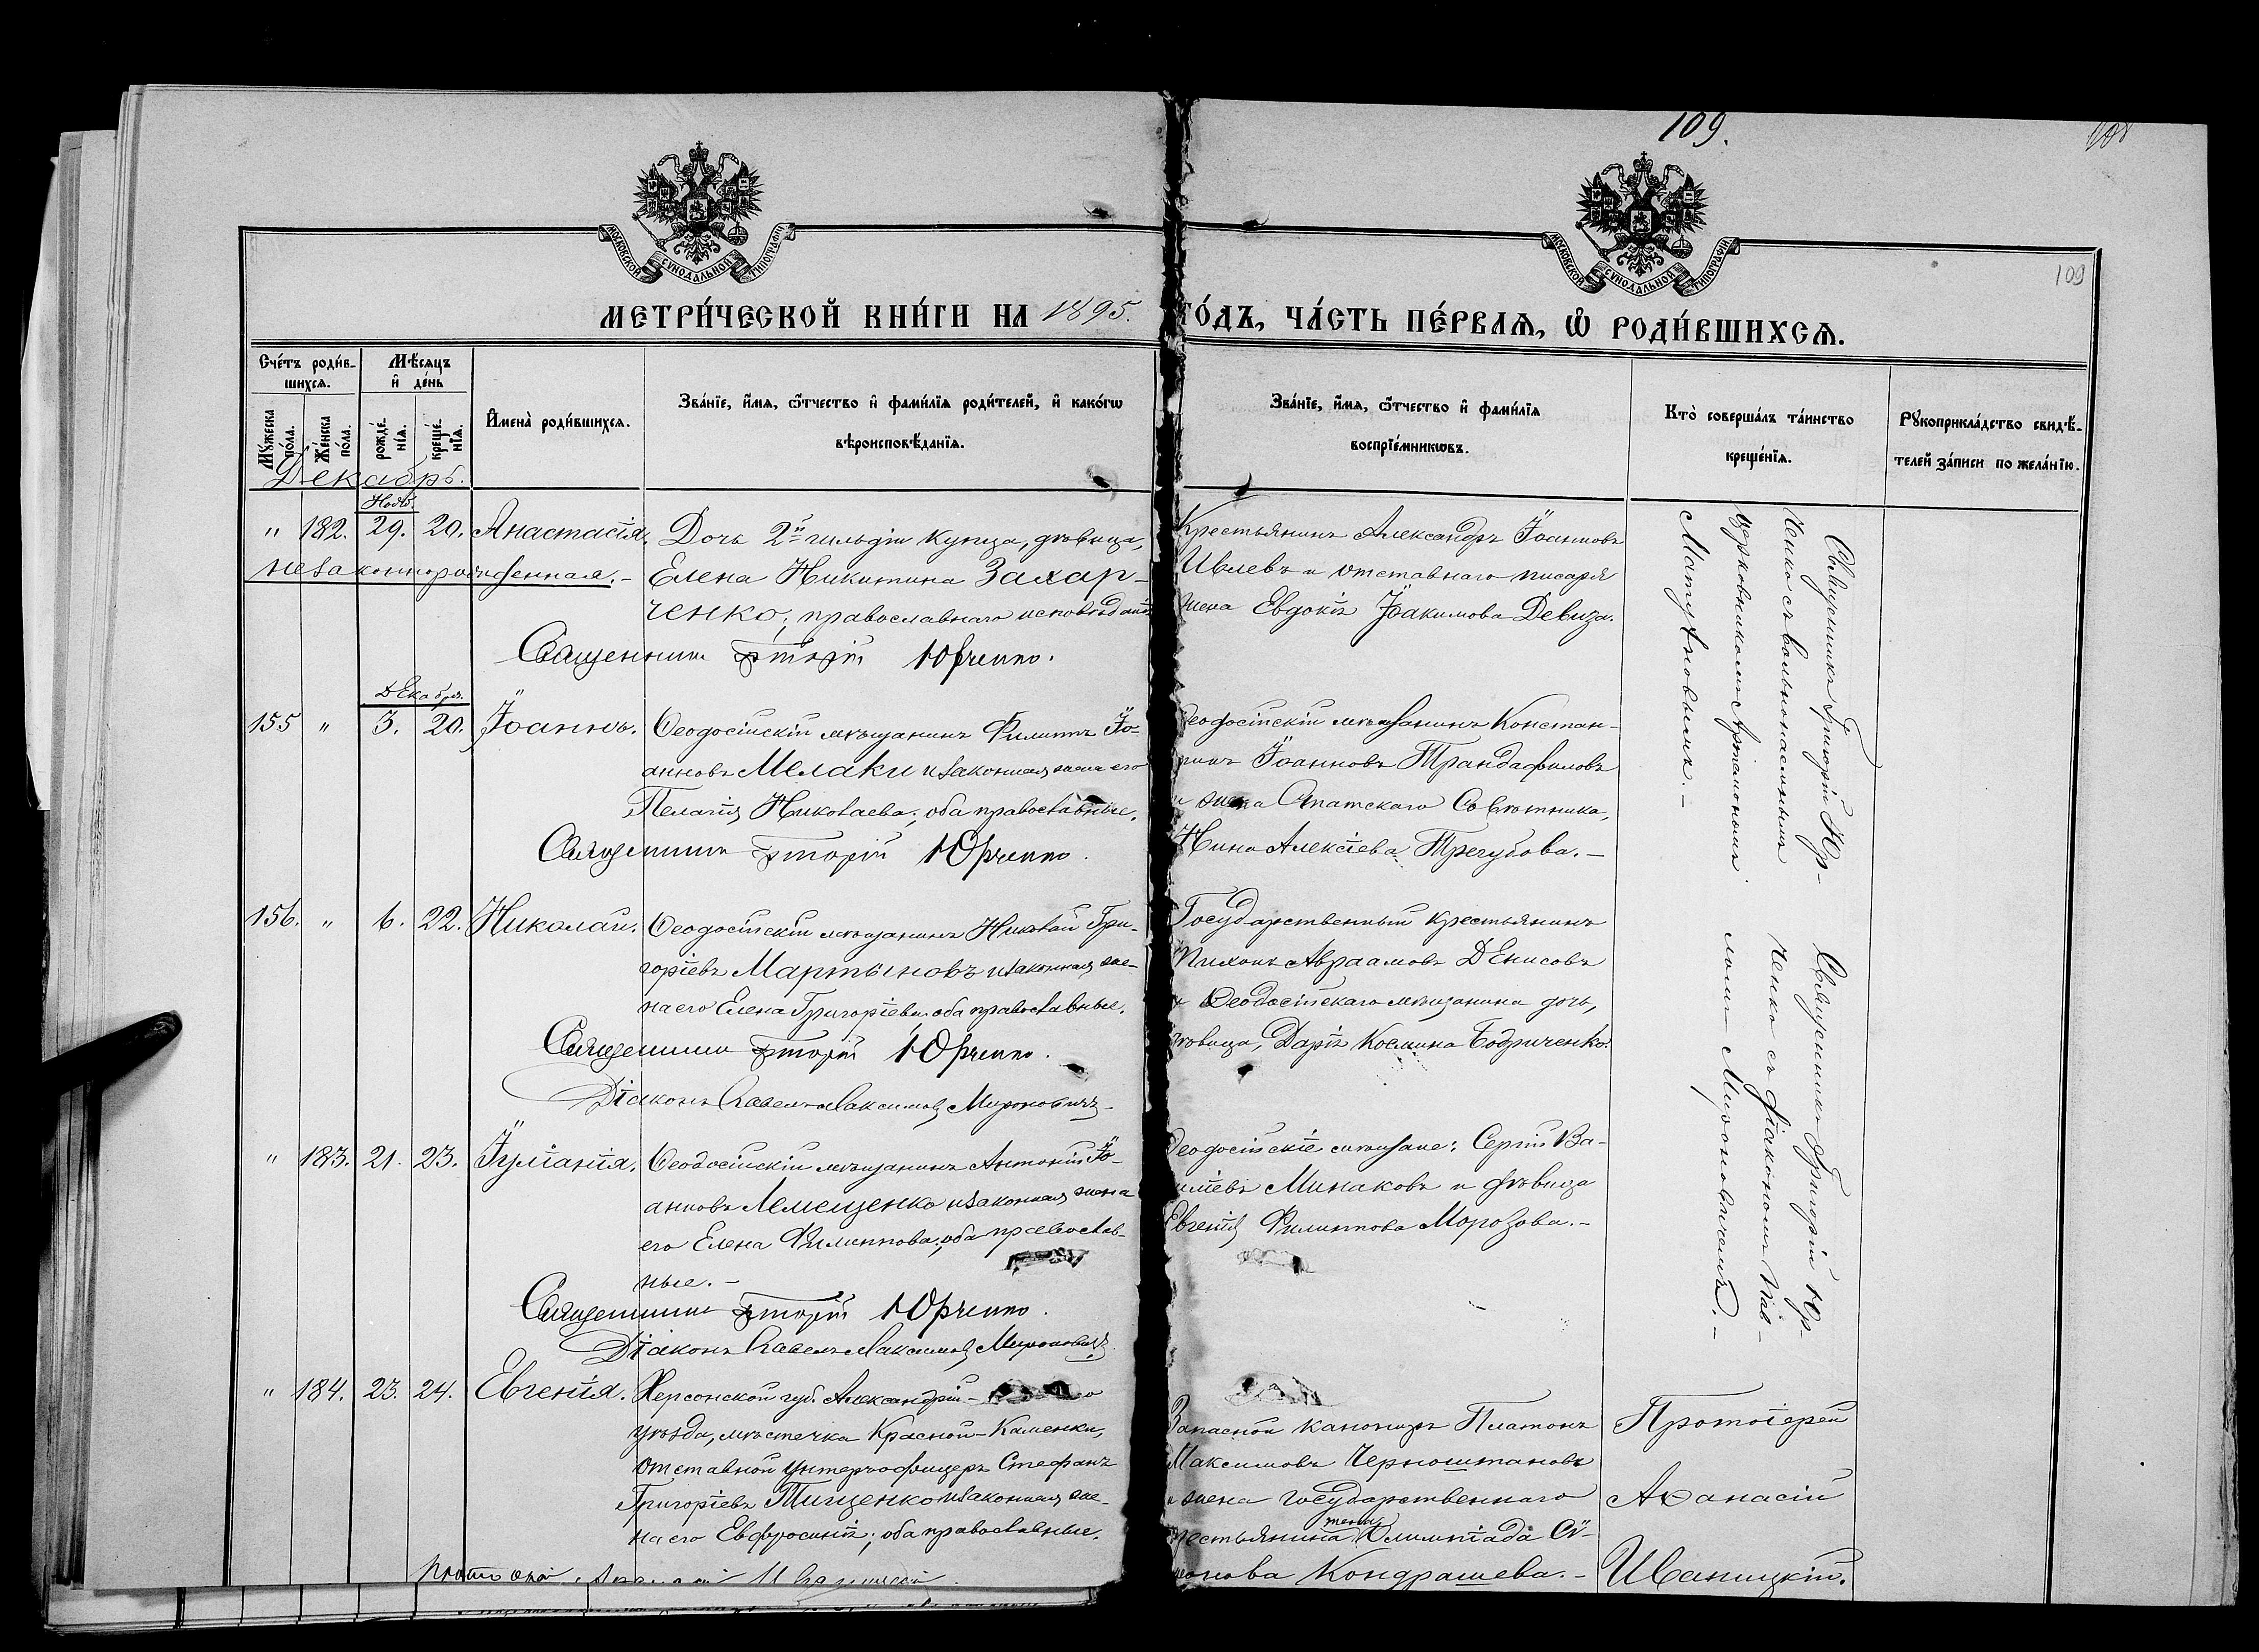 109.
108
109
МОСКОВСКОЙ СѴНОДАЛЬНОЙ ТИПОГРАФІИ
МОСКОВСКОЙ СѴНОДАЛЬНОЙ ТИПОГРАФІИ
МЕТРИ́ЧЕСКОЙ КНИ́ГИ НА 1895. ГО́ДЪ, ЧА́СТЬ ПЕ́РВАЯ, Ѡ РОДИ́ВШИХСЯ.
Сче́тъ роди́в-
шихся.
Мѣ́сяцъ
и де́нь
Мꙋ́жеска
по́ла.
Же́нска
по́ла.
рожде́-
нія.
креще́-
нія.
Имена̀ роди́вшихся.
Зва́ніе, и́мя, ѻ҆́тчество и фами́лія роди́телей, и како́гѡ
вѣроисповѣ́данія.
Зва́ніе, и́мя, ѻ҆́тчество и фами́лія
воспріе́мникѡвъ.
Кто̀ соверша́лъ та́инство
креще́нія.
Рꙋкоприкла́дство свидѣ́-
телей за́писи по жела́нію.
Декабрь.
Нояб.
" 182. 29. 20. Анастасія. Дочь 2й гильдіи купца, дѣвица,
незаконнорожденная.- Елена Никитина Захар-
ченко; православнаго исповѣданія
Священникъ Григорій Юрченко.
Крестьянинъ Александръ Іоанновъ
Ивлевъ и отставнаго писаря
жена Евдокія Іоакимова Девиза.
Священникъ Григорій Юр-
ченко съ вольнонаемнымъ
церковникомъ Артамономъ
Матузновымъ.-
Декабря.
155 " 3. 20. Іоаннъ. Ѳеодосійскій мѣщанинъ Филиппъ Іо-
анновъ Мелаки и законная жена его
Пелагія Николаева; оба православные.
Священникъ Григорій Юрченко.
Ѳеодосійскій мѣщанинъ Констан-
тинъ Іоанновъ Трандафиловъ
и жена Статскаго Совѣтника,
Нина Алексіева Трегубова.-
156. " 6. 22. Николай. Ѳеодосійскій мѣщанинъ Николай Гри-
горіевъ Мартыновъ и законная же-
на его Елена Григоріева; оба православные.
Священникъ Григорій Юрченко.
Діаконъ Павелъ Максимов Мироновичъ
Государственный крестьянинъ
Тихонъ Авраамовъ Денисовъ
и Ѳеодосійскаго мѣщанина дочь,
дѣвица, Дарія Космина Бодриченко.
Священникъ Григорій Юр-
ченко съ діакономъ Пав-
ломъ Мироновичемъ.-
" 183. 21. 23. Іуліанія. Ѳеодосійскій мѣщанинъ Антоній Іо-
анновъ Лемещенко и законная жена
его Елена Филиппова; оба православ-
ные.-
Священникъ Григорій Юрченко.
Діаконъ Павелъ Максимов Мироновичъ
Ѳеодосійскіе мѣщане: Сергій Ва-
силіевъ Минаковъ и дѣвица
Евгенія Филиппова Морозова.-
" 184. 23. 24. Евгенія. Херсонской губ. Александрій-
уѣзда, мѣстечка Красной-Каменки,
отставной унтеръ-офицеръ Стефанъ
Григоріевъ Тищенко и законная же-
на его Евфросинія; оба православные.
Запасной канониръ Платонъ
Максимовъ Черноштановъ
и жена государственнаго
крестьянина Олимпіада Сѵ-
монова Кондрашева.-
Протоіерей
Аѳанасій
Иваницкій.